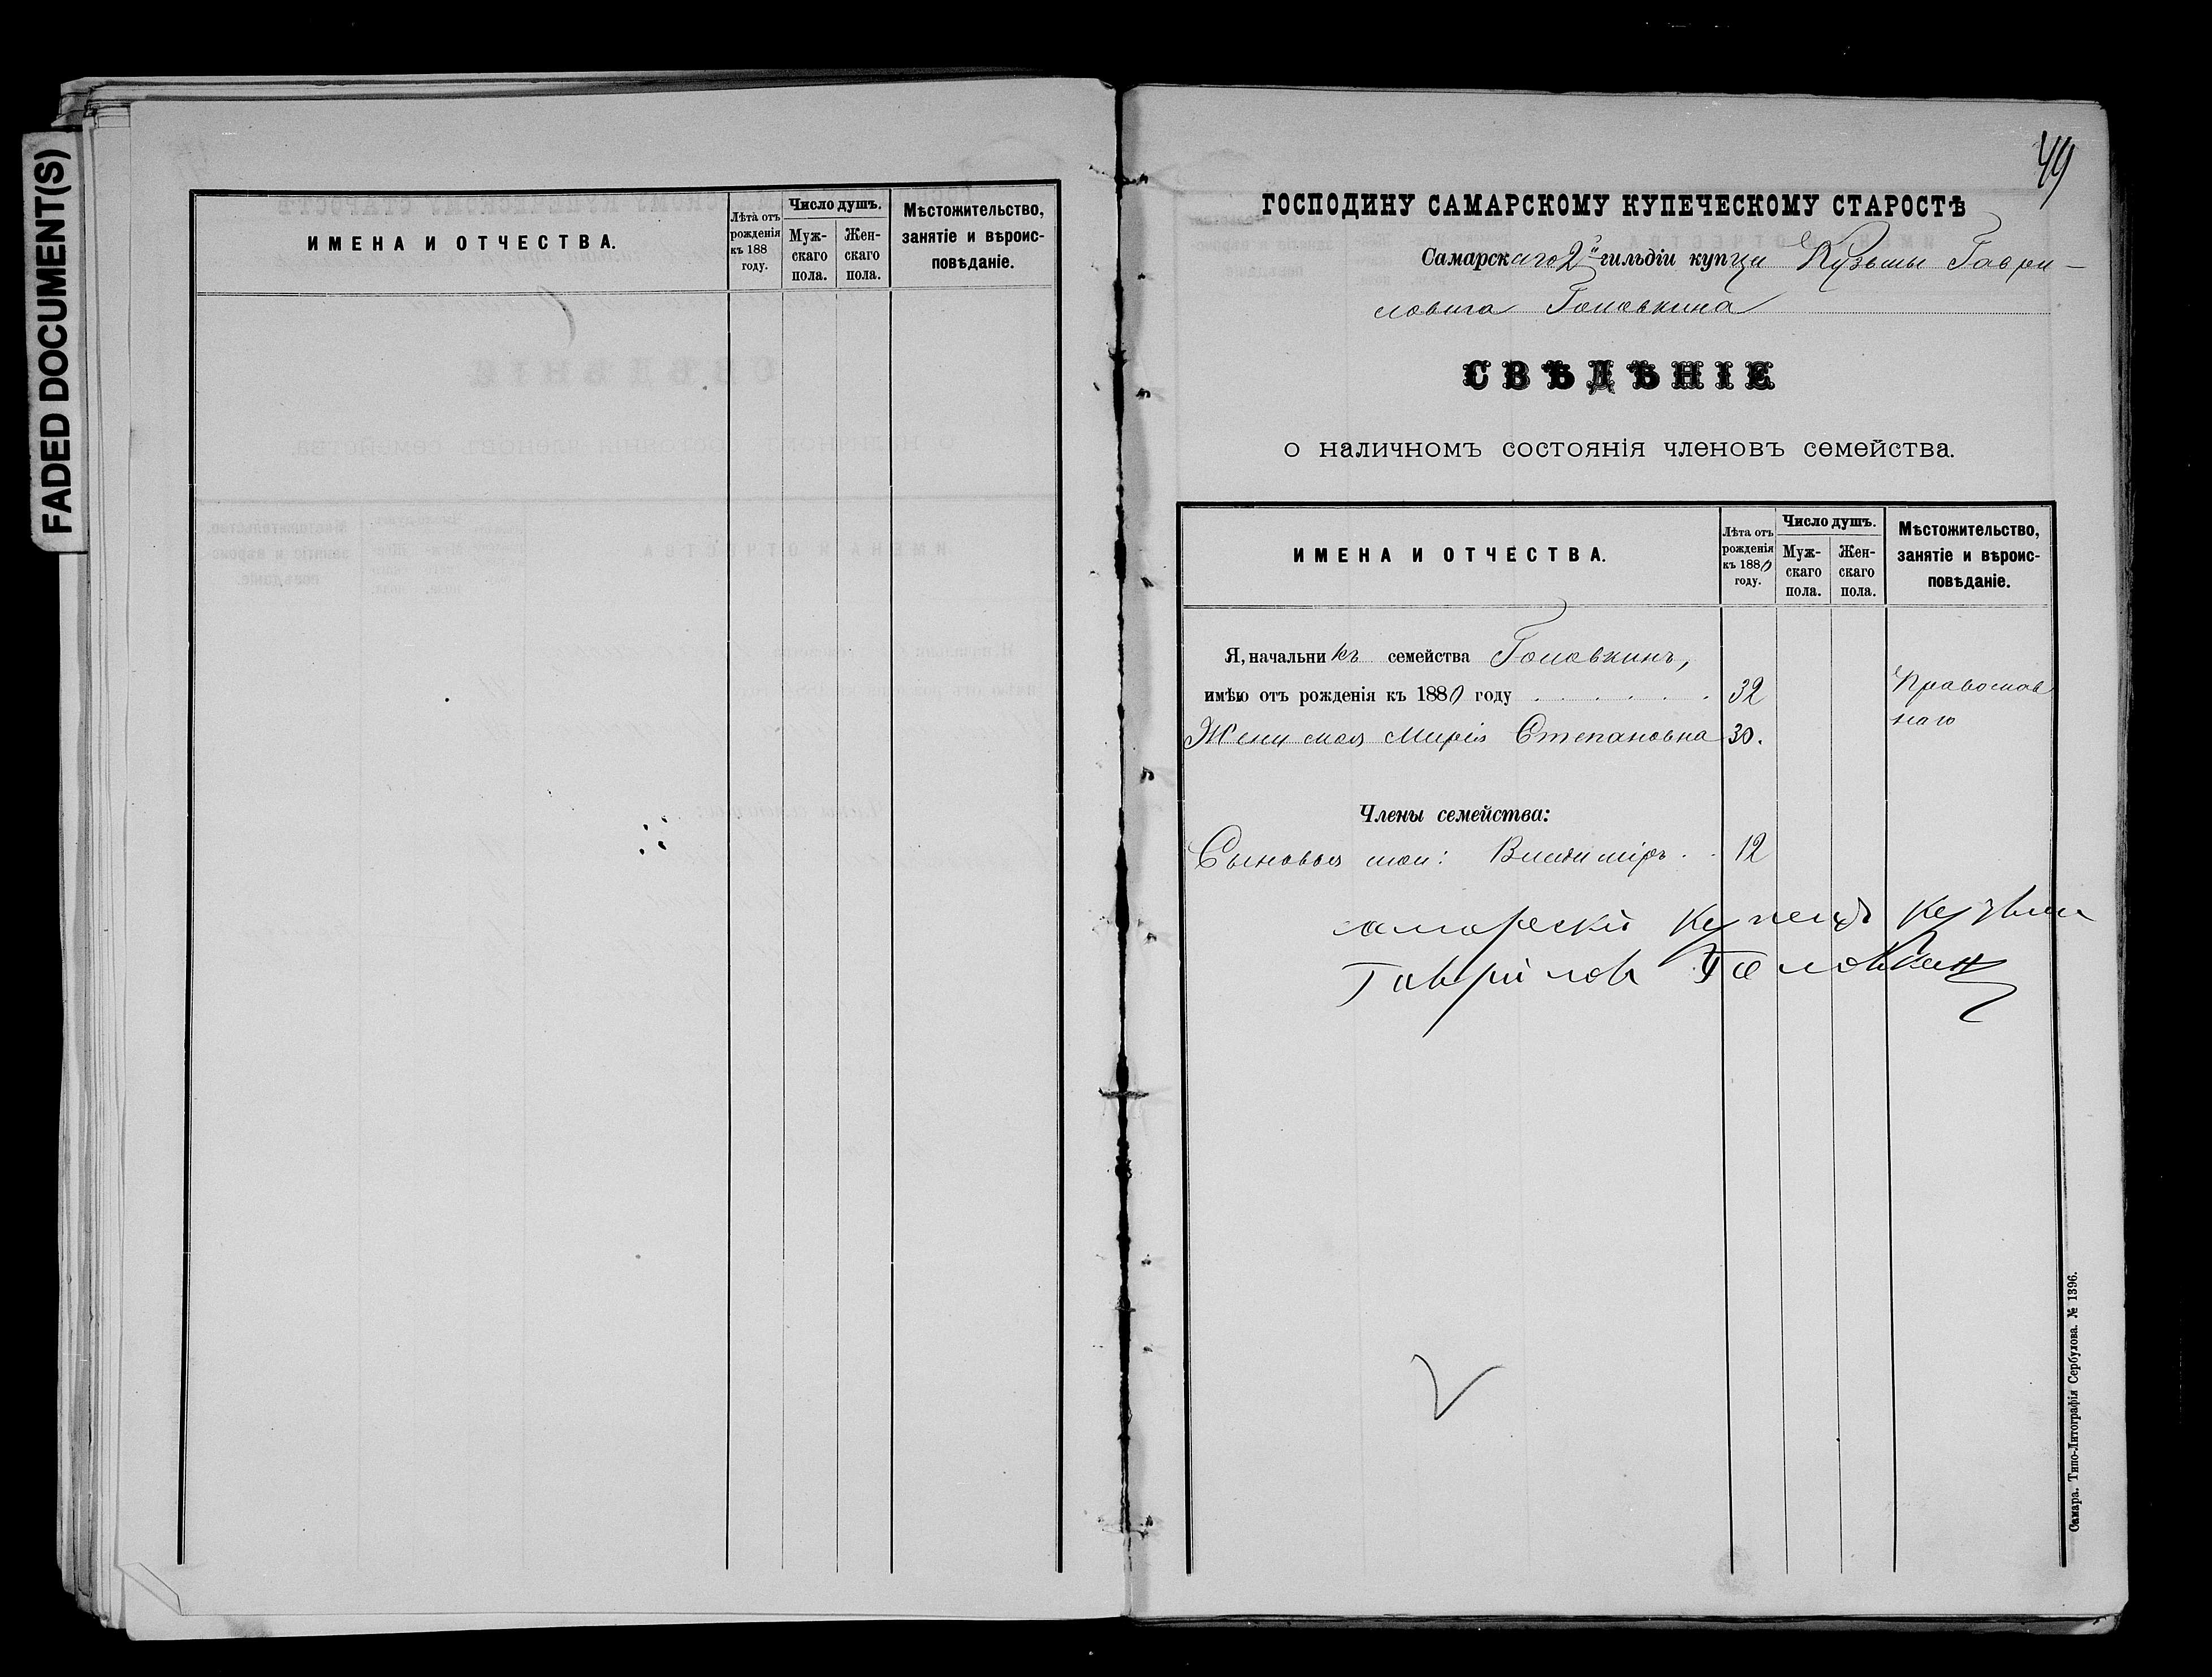 FADED DOCUMENT(S)
ИМЕНА И ОТЧЕСТВА.
Лѣта отъ рожденія къ 188 году.
Число душъ.
Мужскаго пола.
Женскаго пола.
Мѣстожительство, занятіе и вѣроисповѣданіе.
49
ГОСПОДИНУ САМАРСКОМУ КУПЕЧЕСКОМУ СТАРОСТѢ
Самарскаго 2й гильдіи купца Кузьмы Гаври-
ловича Головкина
СВѢДѢНІЕ
о наличномъ состоянія членовъ семейства.
ИМЕНА И ОТЧЕСТВА.
Лѣта отъ
рожденія
къ 1880
году.
Число душъ.
Муж-
скаго
пола.
Жен-
скаго
пола.
Мѣстожительство,
занятіе и вѣроис-
повѣданіе.
Я, начальникъ семейства Головкинъ,
имѣю отъ рожденія къ 1880 году 32 Православ
наго
Жена моя Марія Степановна 30.
Члены семейства:
Сыновья мои: Владиміръ 12
самарскій купецъ Кузьма
Гаврилов Головкин
Самара. Типо-Литографія Сербулова. № 1396.